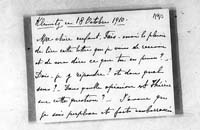 Klemskerke, 18 Octobre 1910.
Ma chère enfant, Fais-moi le plaisir
de lire cette lettre que je viens de recevoir
et de me dire ce que tu en penses ?
Dois-je y répondre ? et dans quel
sens ? Dans quelle opinion est Thérèse
sur cette question ? J'avoue que
je suis perplexe et fort embarrassée